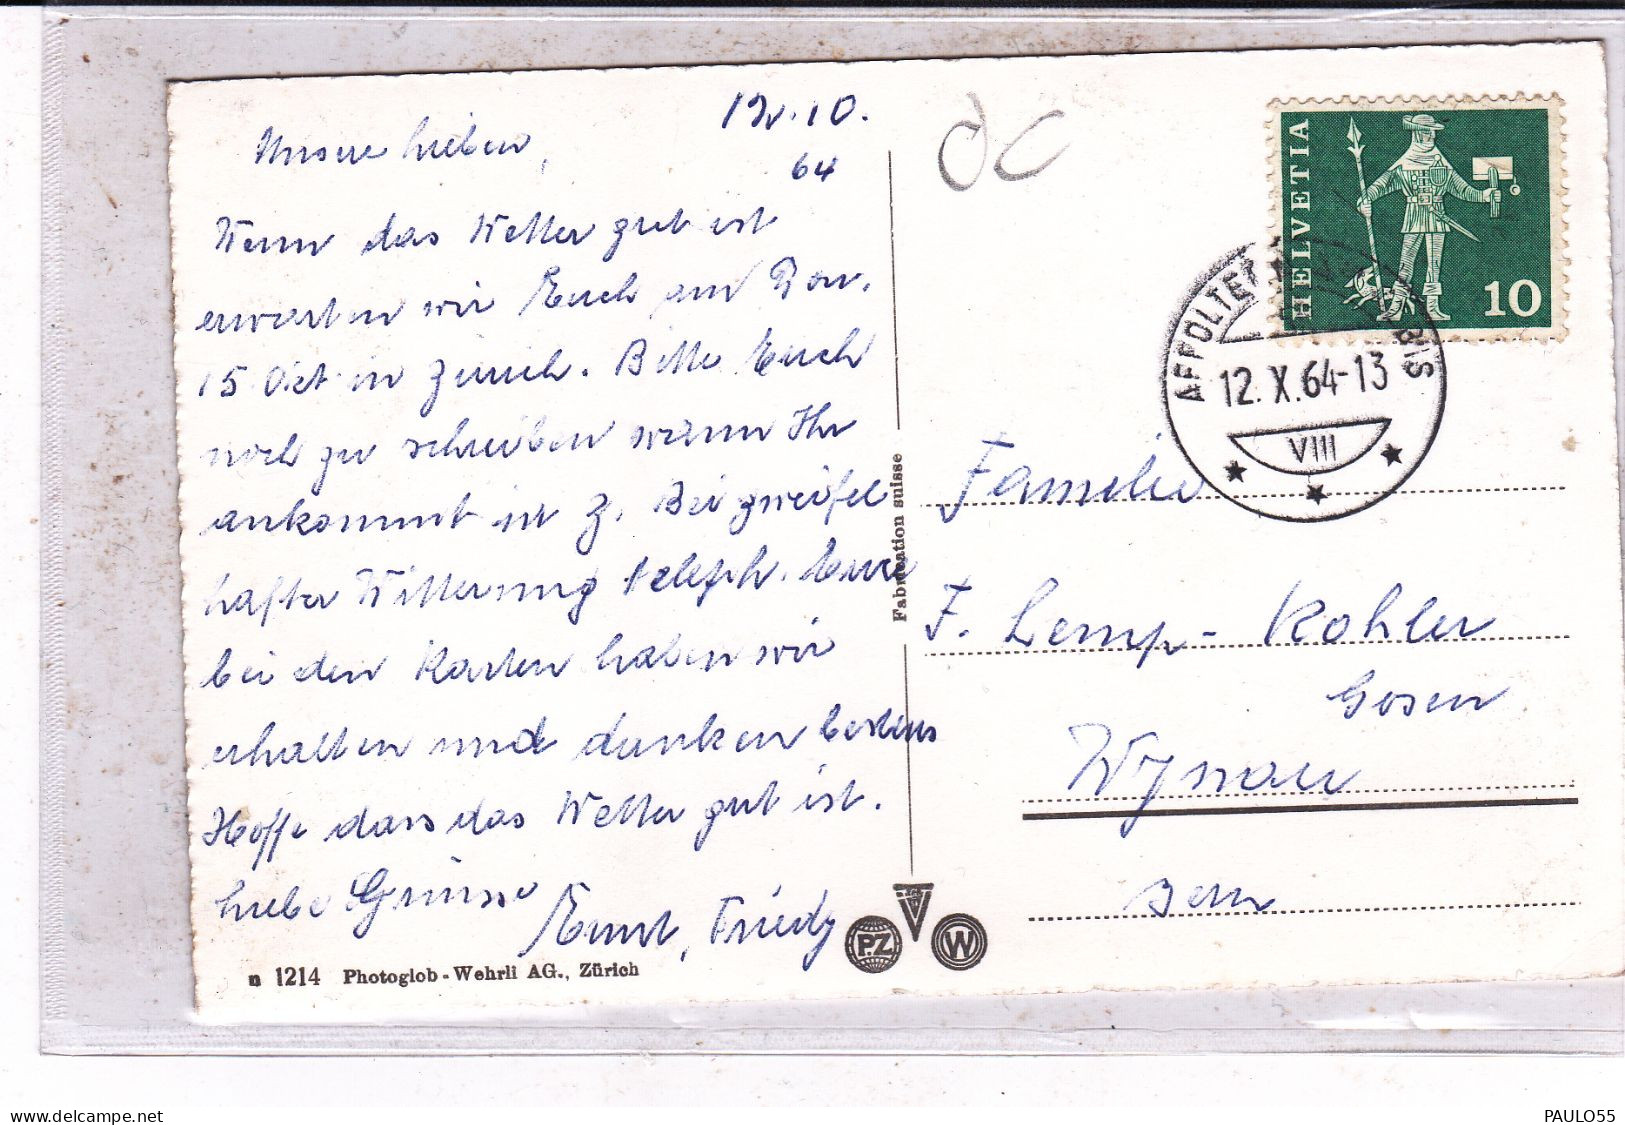 12.10.
64
Unsere Lieben,
Wenn das Wetter gut ist
erwarten wir Euch am Don.
15 Okt in Zürich. Bitte Euch
noch zu schreiben wann Ihr
ankommt in Z. Bei zweifel
hafter Witterung teleph. Eure
bei den Karten haben wir
erhalten und danken bestens
Hoffe dass das Wetter gut ist.
Liebe Grüsse
Ernst, Friedy
n 1214 Photoglob-Wehrli AG., Zürich
Fabrication suisse
PZ
W
HELVETIA
10
AFFOLTERN
12.X.64-13
VIII
Familie
F. Lemp-Kohler
Gosen
Wynau
Bern
www.delcampe.net
PAULO55